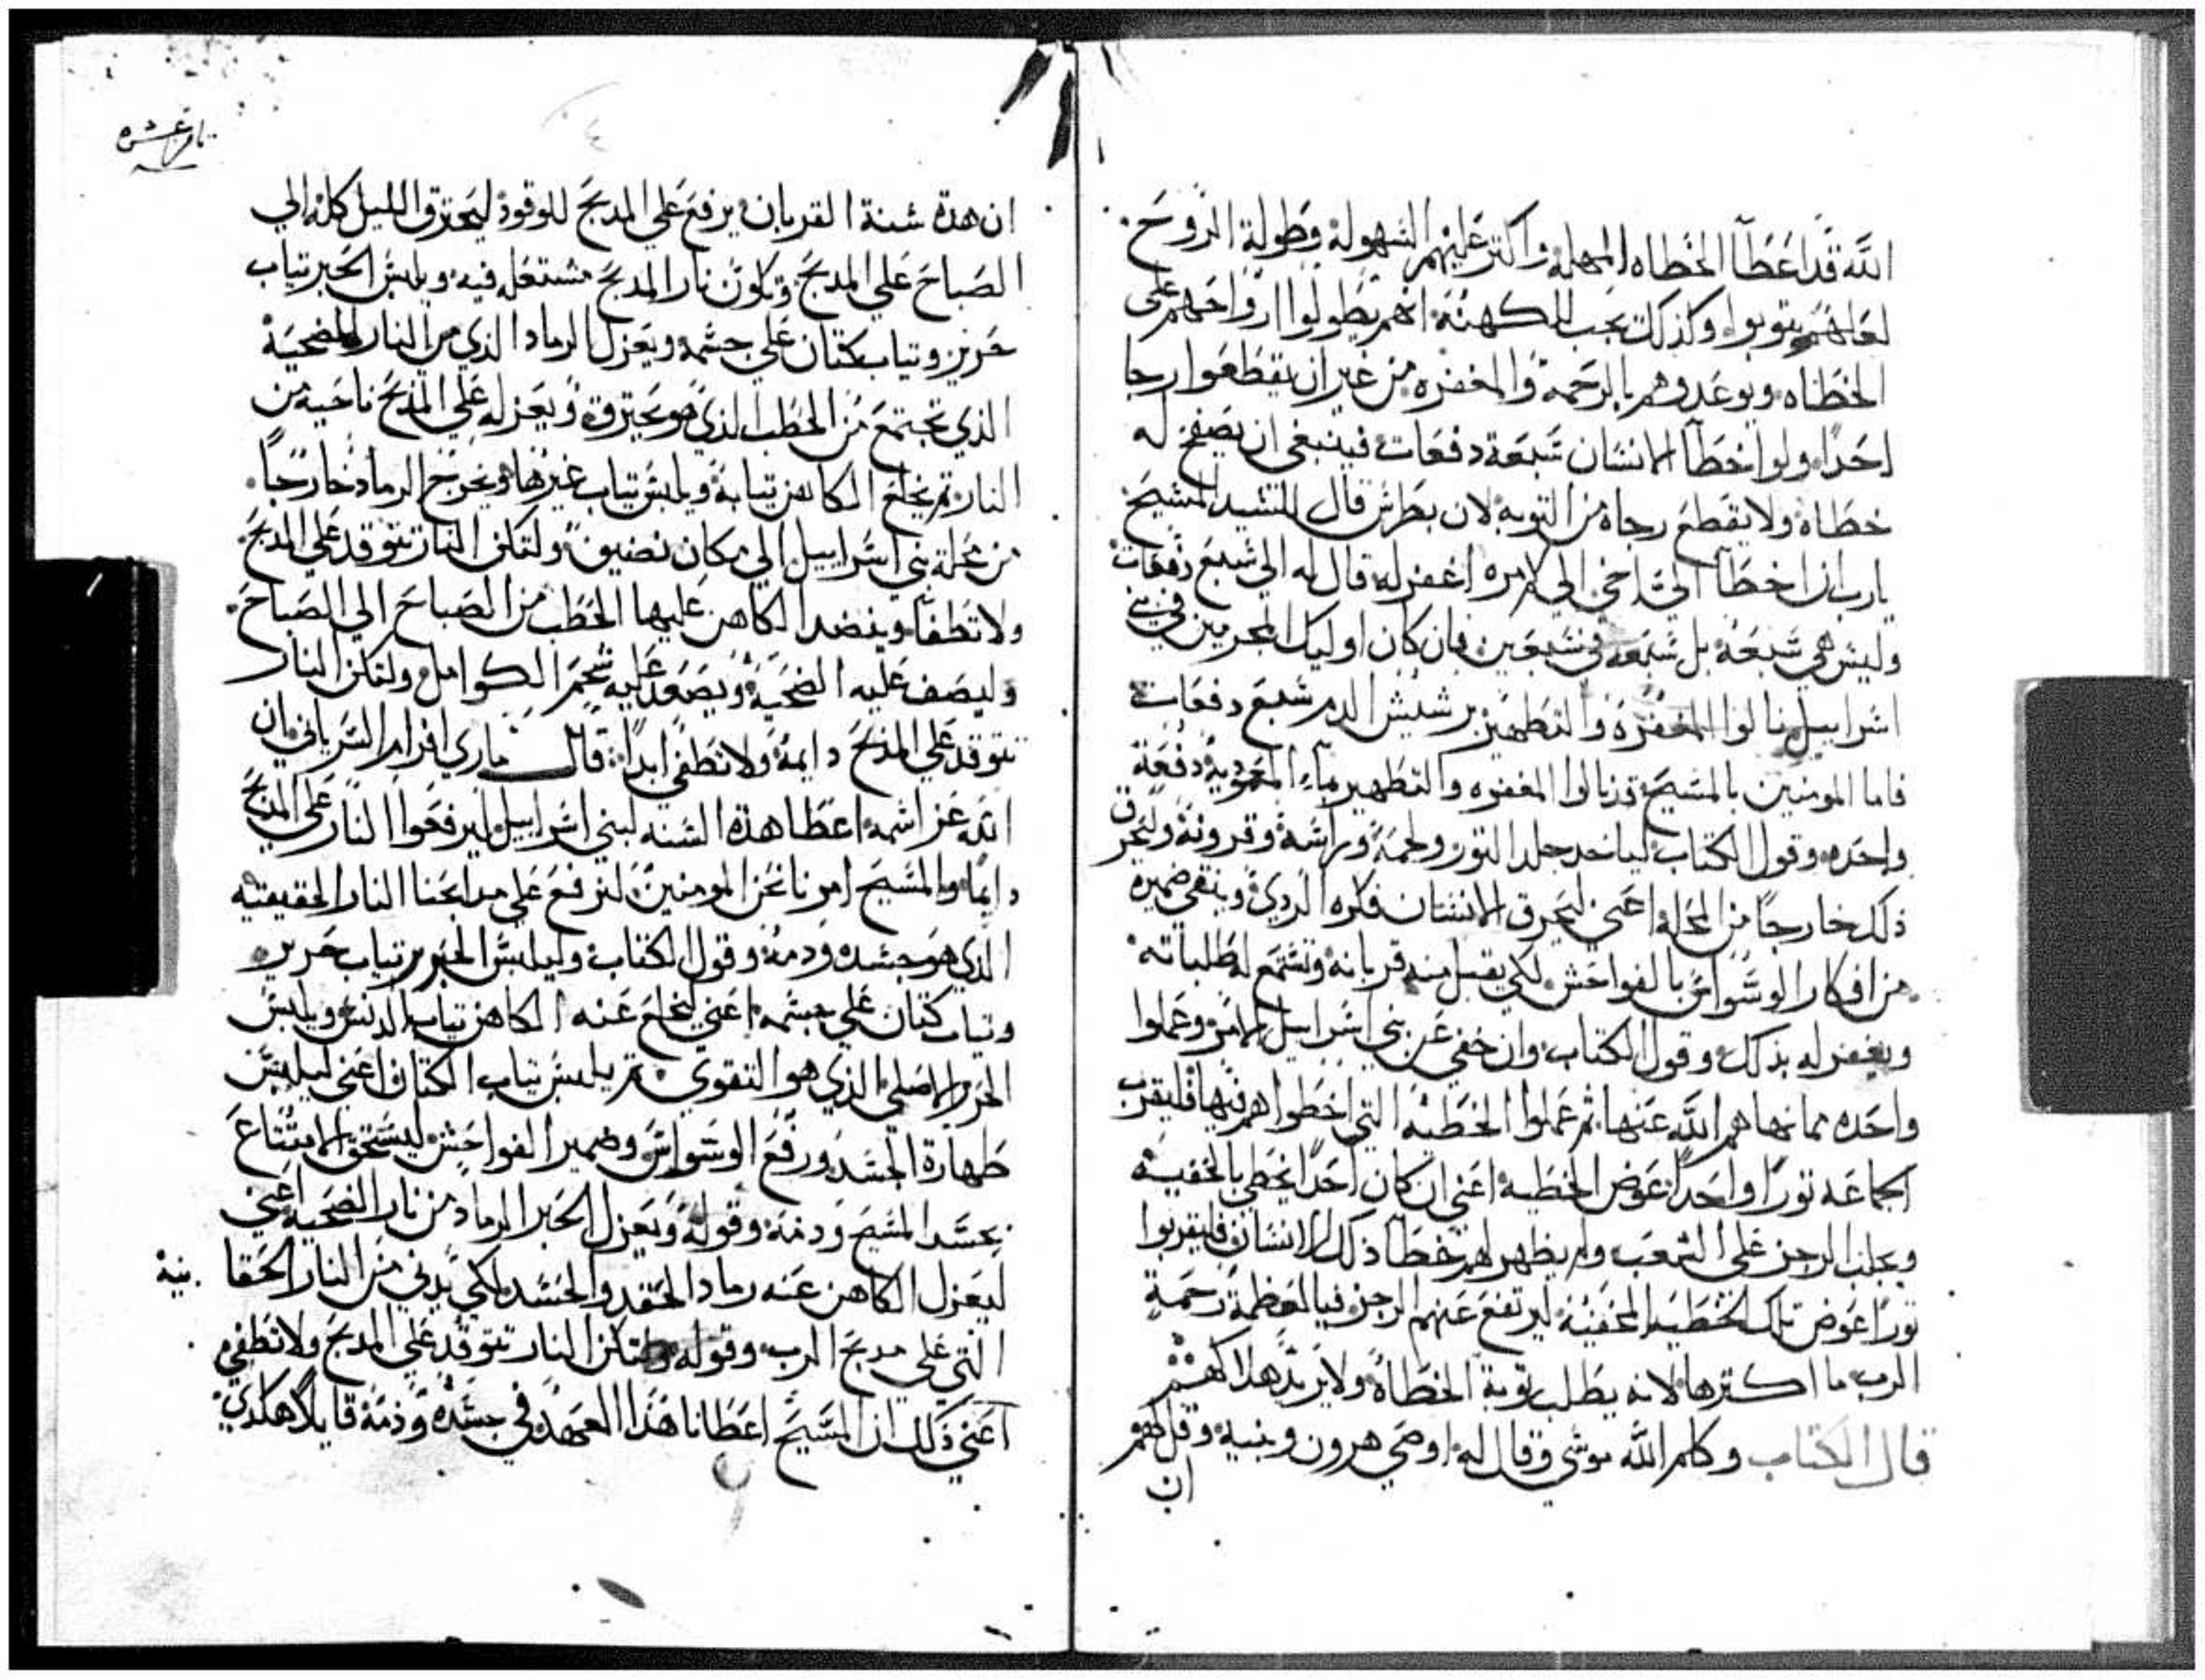 الله قد اعطا الخطاه المهله واكتر عليهم السهوله وطولة الروح
لعلهم يتوبوا وكذلك يجب للكهنة انهم يطولوا ارواحهم على
الخطاه ويوعدوهم بالرحمة والمغفره من غير ان يقطعوا رجا
احدا ولو اخطا الانسان سبعة دفعات فينبغي ان يصفح له
خطاه ولا يقطع رجاه من التوبه لان بطرس قال للسيد المسيح
يارب ان اخطا الي اخي الي كم مره اغفر له قال له الي سبع دفعات
وليس هي سبعة بل سبعه في سبعين فان كان اوليك المجرمين في بني
اسراييل نالوا المغفره والتطهير برشيش الدم سبع دفعات
فاما المومنين بالمسيح قد نالوا المغفره والتطهير بماء المعموديه دفعة
واحده وقول الكتاب لياخد جلد التور ولحمه وراسه وقرونه وليحرق
ذلك خارجا من المحله اعني ليحرق الانسان فكره الردي وينقي ضميره
من افكار الوسواس بالفواحش لكي يقبل منه قربانه وتستمع له طلباته
ويغفر له بذلك وقول الكتاب وان خفي عن بني اسراييل الامر وعملوا
واحده مما نهاهم الله عنها ثم عملوا الخطيه التي اخطوا هم فيها فليقرب
الجماعه تورا واحدا عوض الخطيه اعني ان كان احدا يخطي بالخفية
ويجلب الرجز على الشعب ولم يظهر لهم خطا ذلك الانسان فليقربوا
تورا عوض تلك الخطيه المخفيه ليرتفع عنهم الرجز فيا لعظمة رحمة
الرب ما اكترها لانه يطلب توبة الخطاة ولا يريد هلاكهم
قال الكتاب وكلم الله موسي وقال له اوصي هرون وبنيه وقل لهم
ان
تاني عشره
ان هده سنة القربان يرفع علي المدبح للوقود ليحترق الليل كله الي
الصباح علي المدبح وتكون نار المدبح مشتعله فيه ويلبس الحبر تياب
حرير وتياب كتان علي جسمه ويعزل الرماد الذي من النار للضحية
الذي تجتمع من الحطب الذي هو يحترق ويعزله علي المدبح ناحية من
النار تم يخلع الكاهن تيابه ويلبس تياب غيرها ويخرج الرماد خارجا
من محلة بني اسراييل الي مكان نضيف ولتكن النار تتوقد علي المدبح
ولا تطفا وينضد الكاهن عليها الحطب من الصباح الي الصباح
وليصف عليه الضحية ويصعد عليه شحم الكوامل ولتكن النار
تتوقد علي المدبح دايمة ولا تطفي ابدا قال ماري افرام السرياني ان
الله عز اسمه اعطا هذه السنه لبني اسراييل ليرفعوا النار علي المدبح
دايما والمسيح امرنا نحن المومنين لنرفع علي مدابحنا النار الحقيقيه
الذي هو جسده ودمه وقول الكتاب وليلبس الحبر تياب حرير
وتياب كتان علي جسمه اعني ليخلع عنه الكاهن تياب الدنس ويلبس
الحرير الاصلي الذي هو التقوي تم يلبس تياب الكتان اعني ليلبس
طهارة الجسد ورفع الوسواس وضمير الفواحش ليستحق الامتناع
بجسد المسيح ودمه وقوله ويعزل الحبر الرماد من نار الضحيه اعني
ليعزل الكاهن عنه رماد الحقد والحسد لكي يدني من النار الحقا نية
التي علي مدبح الرب وقوله ولتكن النار تتوقد علي المدبح ولا تطفي
اعني ذلك ان المسيح اعطانا هذا العهد في جسده ودمه قايلا هكدي